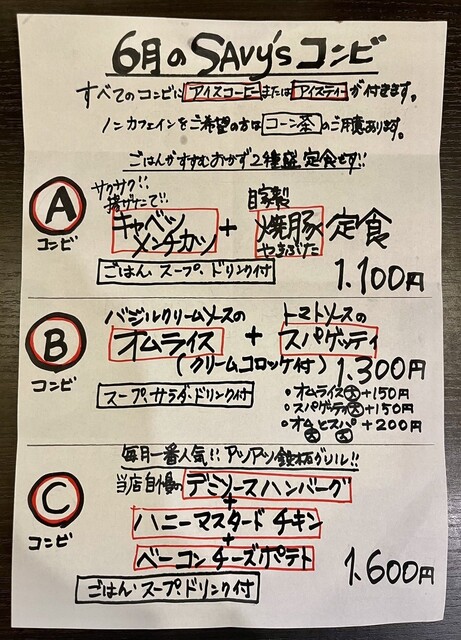 6月のSAvy'sコンビ
すべてのコンビに アイスコーヒー または アイスティー が付きます。
ノンカフェインをご希望の方は コーン茶 のご用意あります。
ごはんがすすむおかず2種盛定食です!!
A コンビ
サクサク!! 揚げたて!!
キャベツメンチカツ
+
自家製
焼豚
やきぶた
定食
ごはん、スープ、ドリンク付
1.100円
B コンビ
バジルクリームソースの
オムライス
+
トマトソースの
スパゲッティ
(クリームコロッケ付)
1.300円
スープ、サラダ、ドリンク付
・オムライス大+150円
・スパゲッティ大+150円
・オム大とスパ大+200円
C コンビ
毎月一番人気!! アツアツ鉄板グリル!!
当店自慢の デミソースハンバーグ
+
ハニーマスタードチキン
+
ベーコンチーズポテト
ごはん、スープ、ドリンク付
1.600円